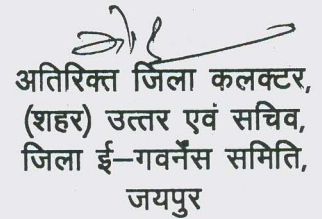 अतिरिक्त जिला कलक्टर,
(शहर) उत्तर एवं सचिव,
जिला ई–गवर्नेंस समिति,
जयपुर